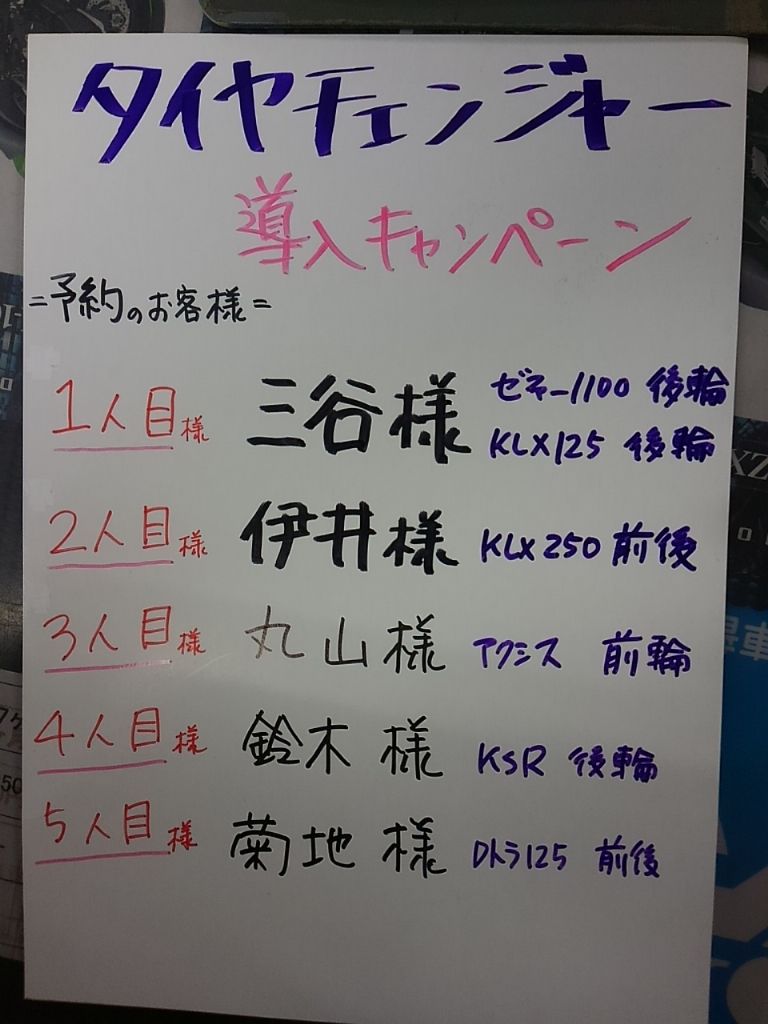 タイヤチェンジャー
導入キャンペーン
=予約のお客様=
1人目様 三谷様 ゼファー1100 後輪
KLX125 後輪
2人目様 伊井様 KLX250 前後
3人目様 丸山様 アクシス 前輪
4人目様 鈴木様 KSR 後輪
5人目様 菊地様 Dトラ125 前後